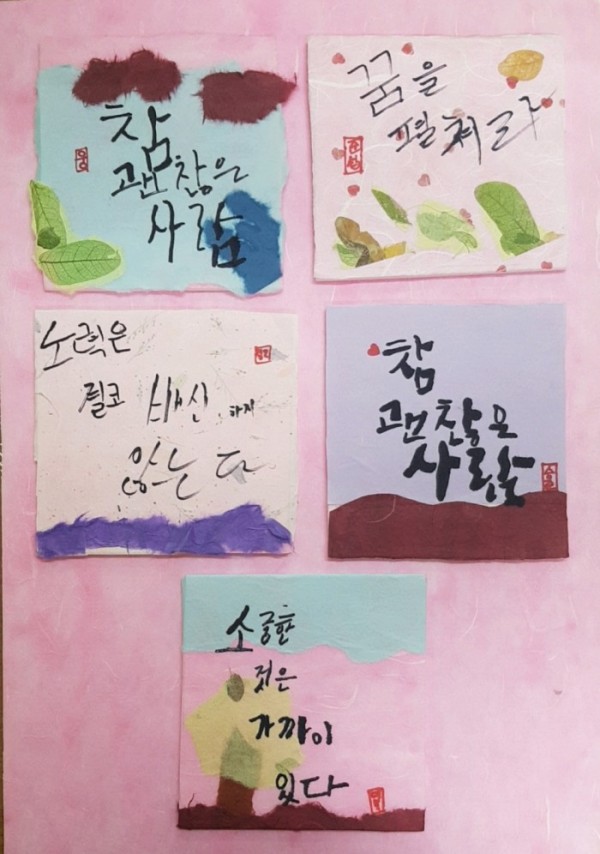 참
괜찮은
사람
꿈을
펼쳐라
노력은
결코 배신하지
않는다
참
괜찮은
사람
소중한
것은
가까이
있다